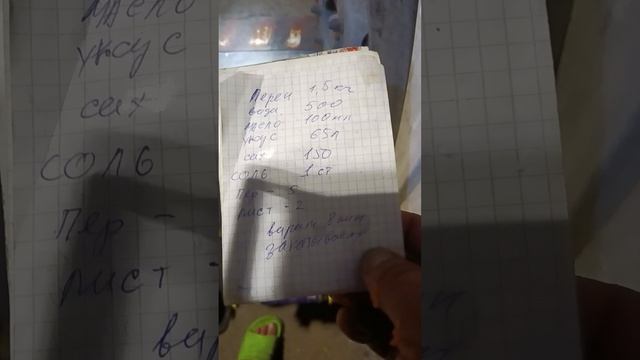 Перец 1,5 кг
вода. 500
масло 100 мл
уксус 65л
сах 150
соль 1 ст
Пер - 5
лист - 2
варить 8 мин
закатываем